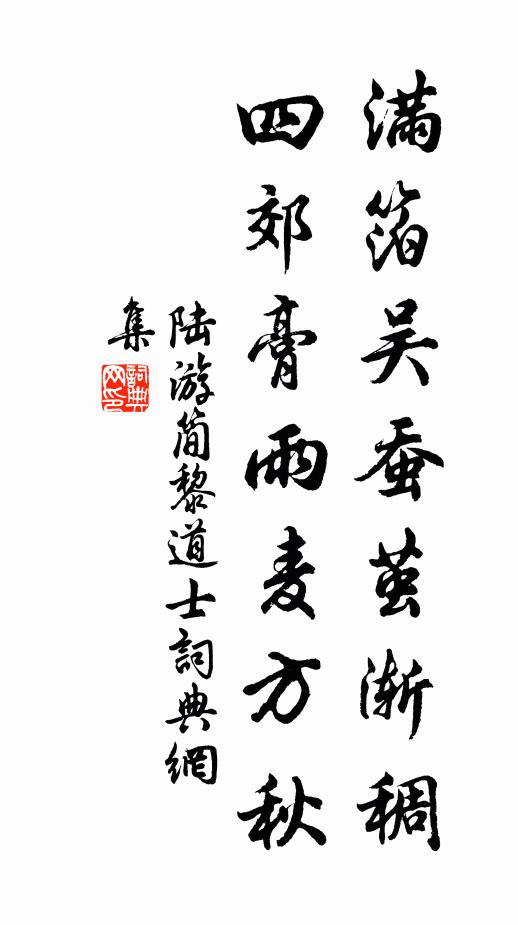 满箔吴蚕茧渐稠
四郊膏雨麦方秋
陆游简黎道士詞典網
集
詞典网印